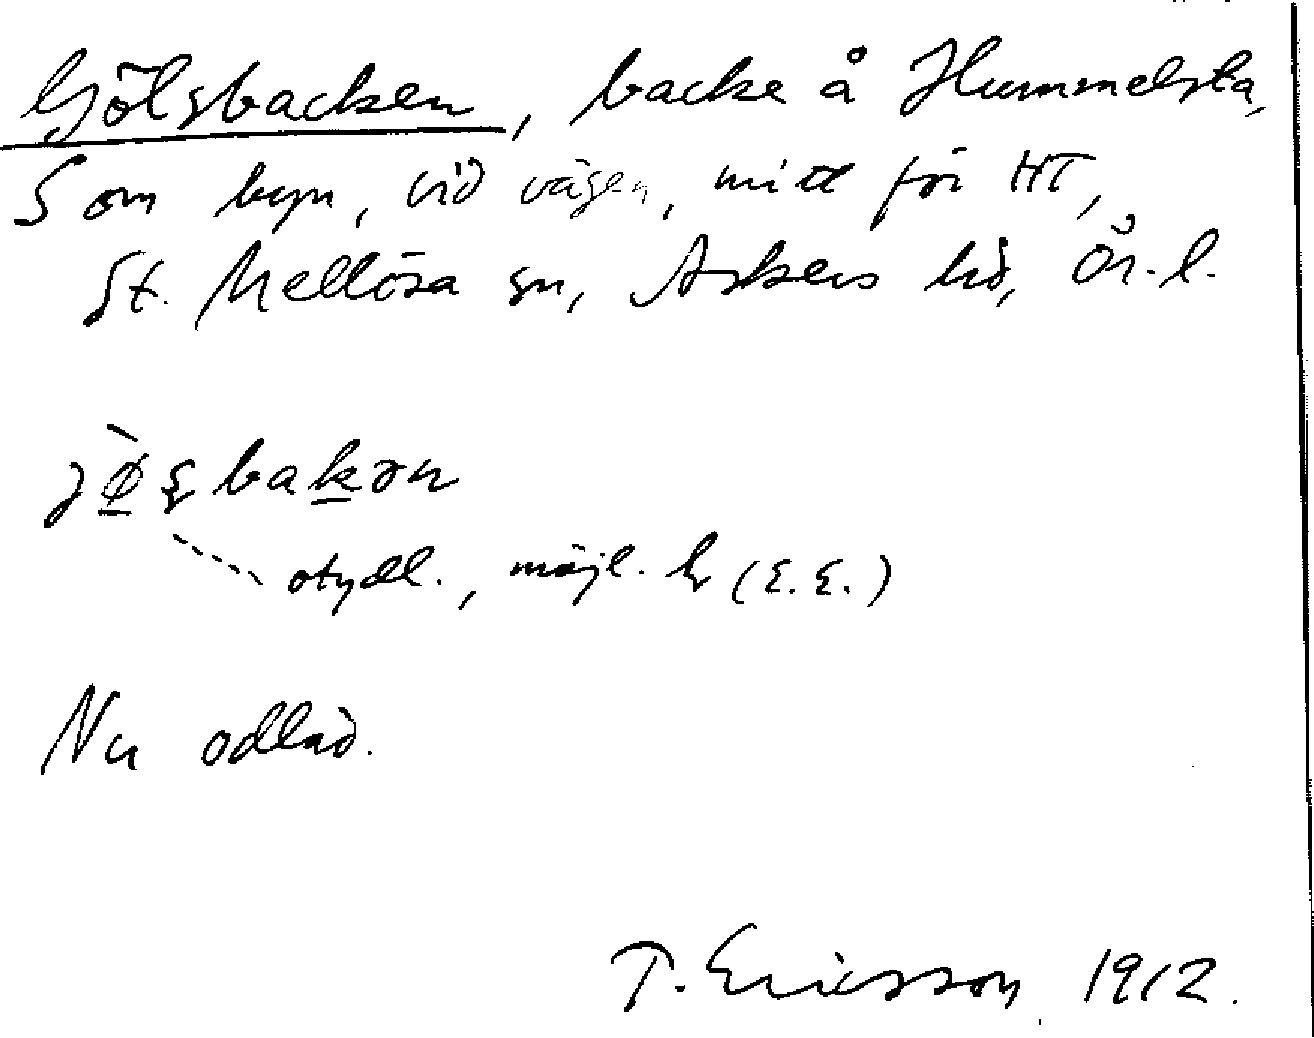 Gölsbacken, backe å Hummelsta,
S om byn, vid vägen, mitt för HT,
St. Mellösa sn, Askers hd, Ör. l.
otydl., möjl. (E. E.)
Nu odlad.
T. Ericsson 1912.